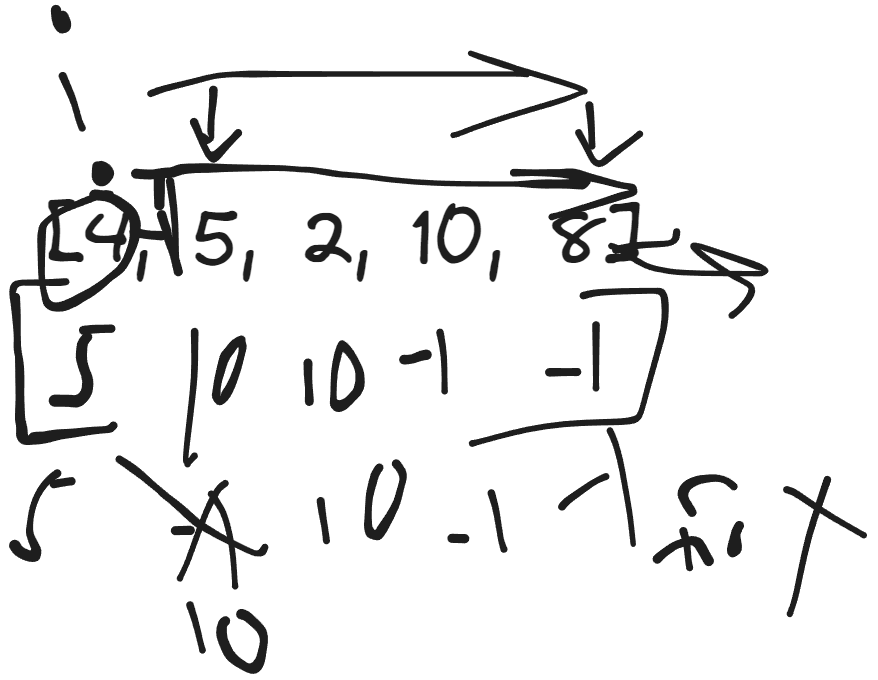 [4, 5, 2, 10, 8]
5 10 10 -1 -1
5 10 -1 -1
10